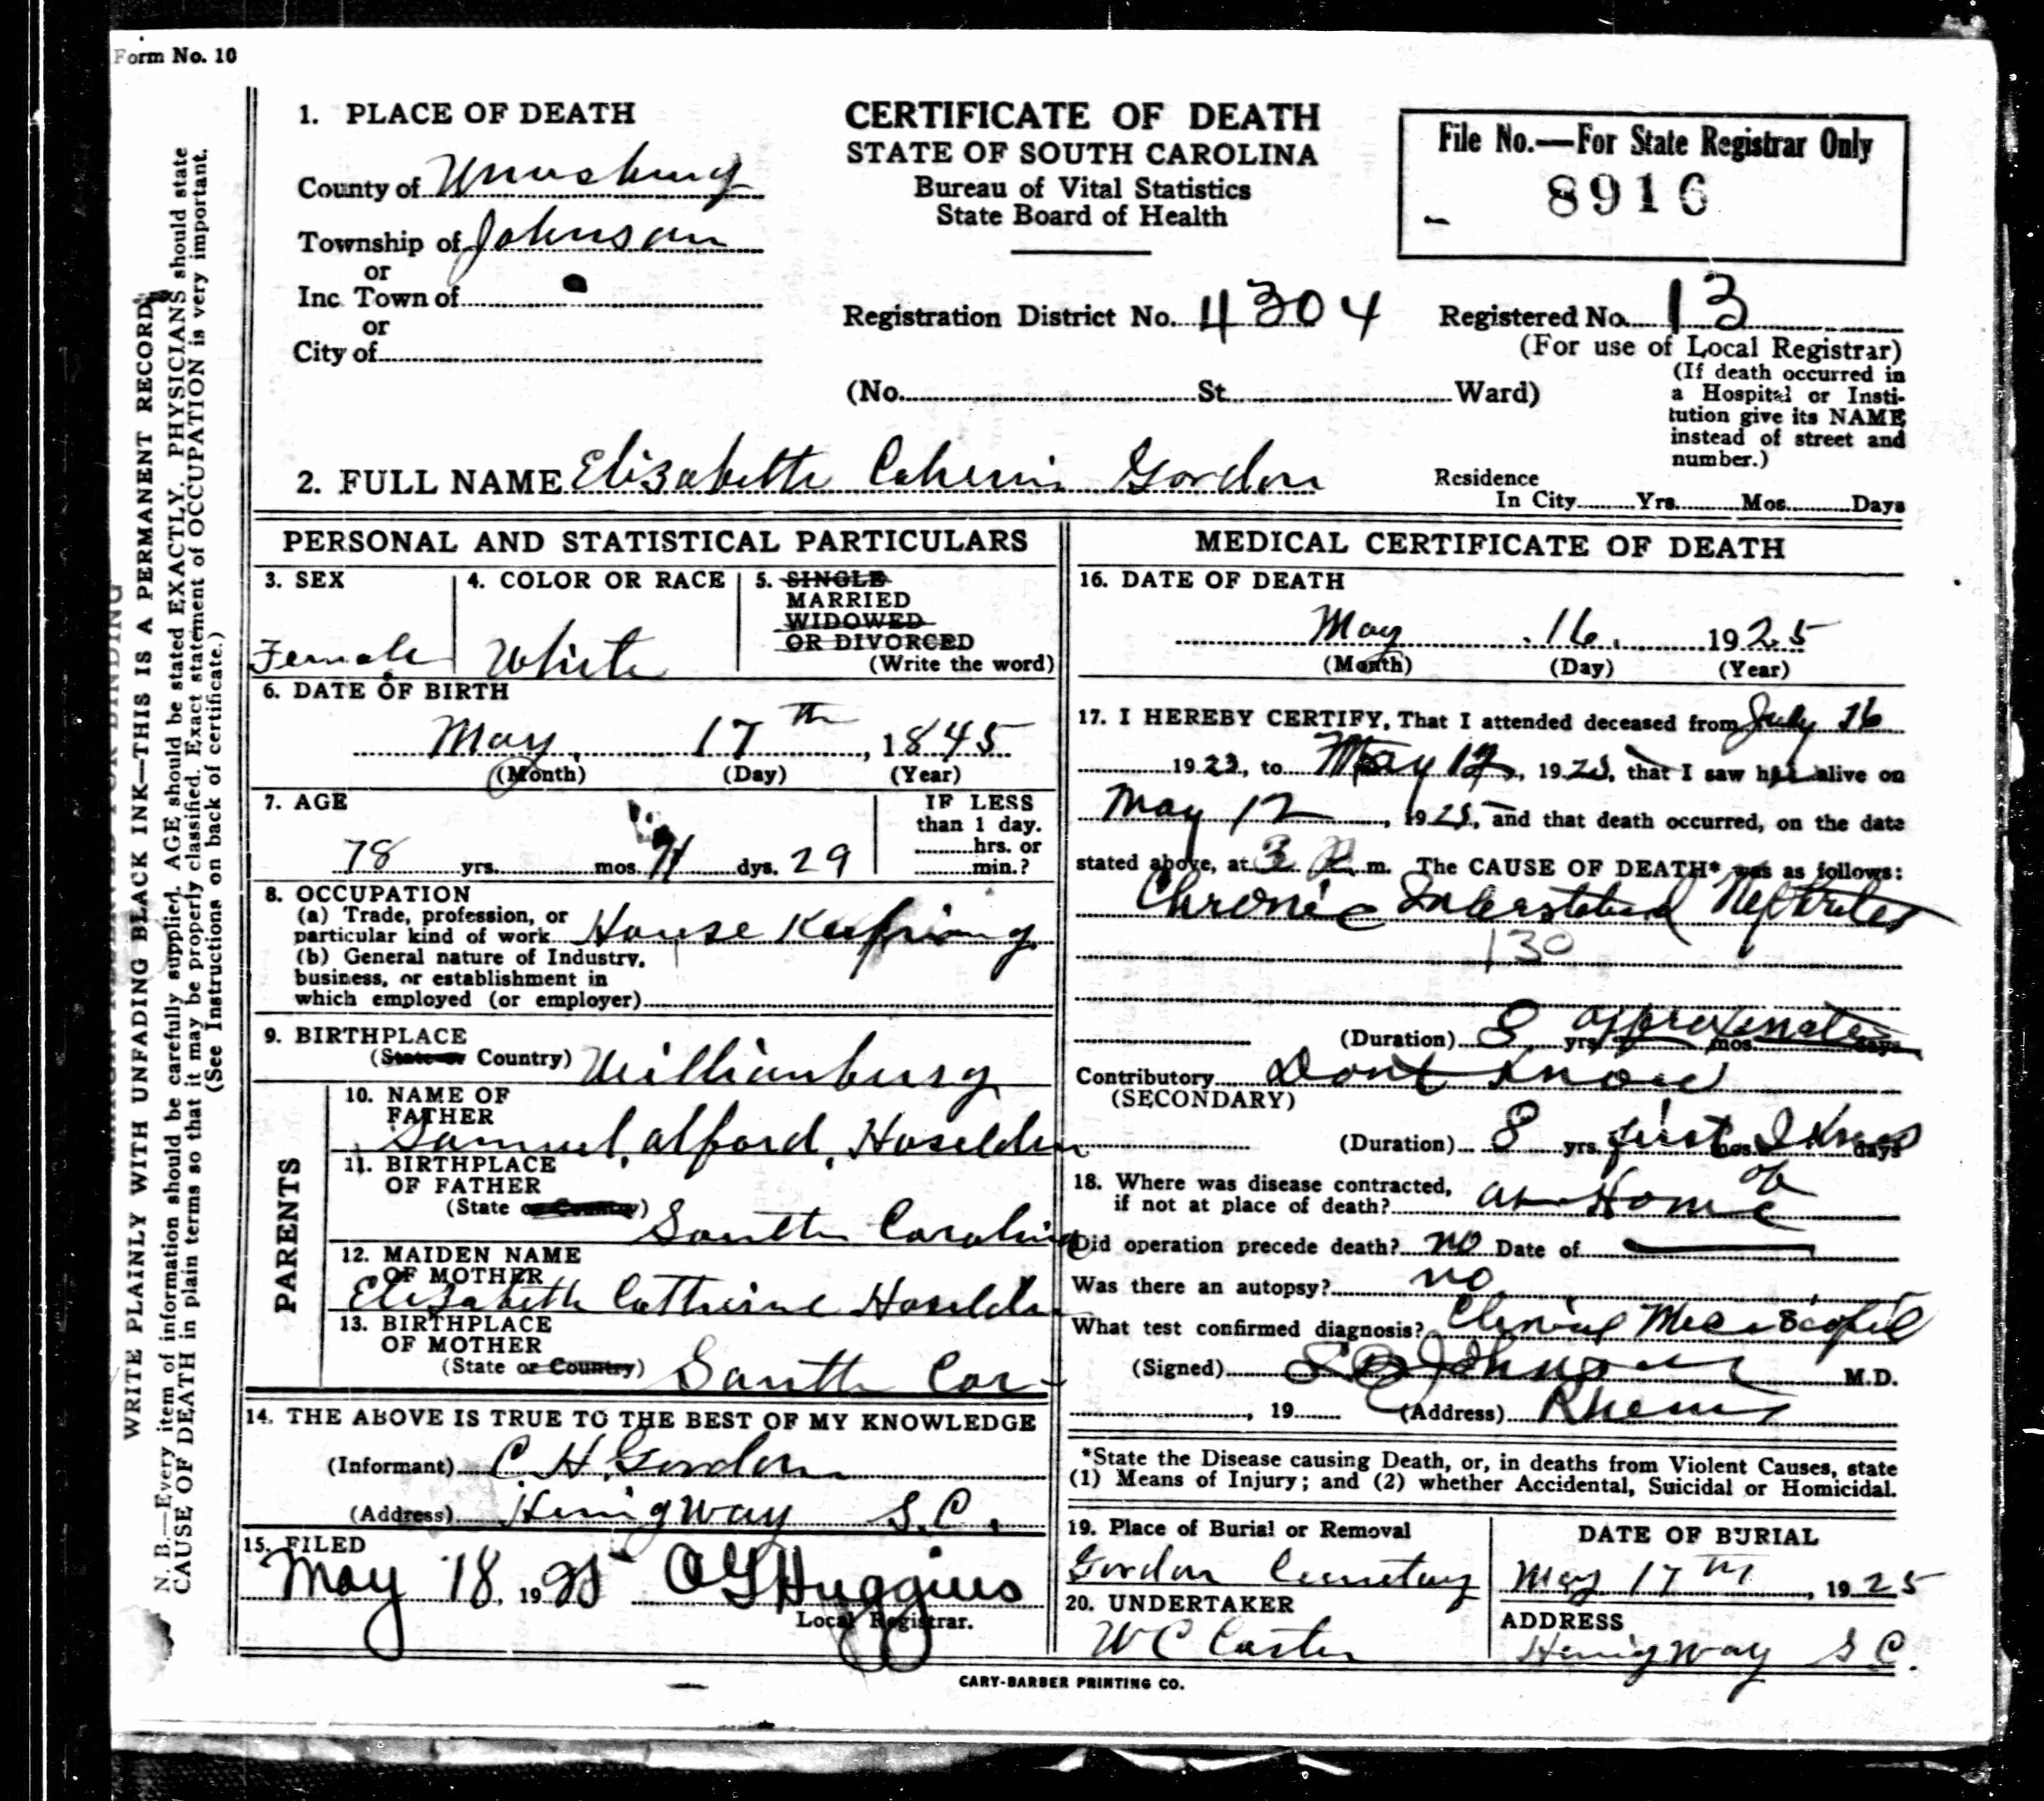 Form No. 10
1. PLACE OF DEATH
County of
Township of Johnson
or
Inc. Town of
or
City of
CERTIFICATE OF DEATH
STATE OF SOUTH CAROLINA
Bureau of Vital Statistics
State Board of Health
File No.—For State Registrar Only
8916
Registration District No. 4304
Registered No. 13
(For use of Local Registrar)
(No. St. Ward)
(If death occurred in
a Hospital or Insti-
tution give its NAME
instead of street and
number.)
2. FULL NAME Elizabethe Gordon
Residence
In City Yrs. Mos. Days
PERSONAL AND STATISTICAL PARTICULARS
3. SEX
Female
4. COLOR OR RACE
White
5. SINGLE
MARRIED
WIDOWED
OR DIVORCED
(Write the word)
6. DATE OF BIRTH
May 17th, 1845
(Month) (Day) (Year)
7. AGE
78 yrs. mos. 11 dys. 29
IF LESS
than 1 day.
hrs. or
min.?
8. OCCUPATION
(a) Trade, profession, or
particular kind of work House Keeping
(b) General nature of Industry,
business, or establishment in
which employed (or employer)
9. BIRTHPLACE
(State or Country) Williamburg
PARENTS
10. NAME OF
FATHER
Samuel, alford, Haselden
11. BIRTHPLACE
OF FATHER
(State or Country)
South Carolina
12. MAIDEN NAME
OF MOTHER
Elizabeth Catherine Haselden
13. BIRTHPLACE
OF MOTHER
(State or Country) South Car-
14. THE ABOVE IS TRUE TO THE BEST OF MY KNOWLEDGE
(Informant) C. H. Gordon
(Address) Hemigway S.C.
15. FILED
May 18, 1925 O G Huggins
Local Registrar.
MEDICAL CERTIFICATE OF DEATH
16. DATE OF DEATH
May 16, 1925
(Month) (Day) (Year)
17. I HEREBY CERTIFY, That I attended deceased from July 16
1923, to May 12, 1925, that I saw her alive on
May 12, 1925, and that death occurred, on the date
stated above, at 3 P. m. The CAUSE OF DEATH* was as follows:
Chronic Interstitial Nephrites
130
(Duration) 8 yrs. approximates mos. days
Contributory Dont Know
(SECONDARY)
(Duration) 8 yrs. first I Knew mos. days
of
18. Where was disease contracted,
if not at place of death? at Home
Did operation precede death? no Date of
Was there an autopsy? no
What test confirmed diagnosis? Clinical
(Signed) Johnson M.D.
, 19 (Address) Rhems
*State the Disease causing Death, or, in deaths from Violent Causes, state
(1) Means of Injury; and (2) whether Accidental, Suicidal or Homicidal.
19. Place of Burial or Removal
Gordon Cemetary
DATE OF BURIAL
May 17th, 1925
20. UNDERTAKER
W C Carter
ADDRESS
Hemigway S C.
CARY-BARBER PRINTING CO.
WRITE PLAINLY WITH UNFADING BLACK INK—THIS IS A PERMANENT RECORD.
N. B.—Every item of information should be carefully supplied. AGE should be stated EXACTLY. PHYSICIANS should state
CAUSE OF DEATH in plain terms so that it may be properly classified. Exact statement of OCCUPATION is very important.
(See Instructions on back of certificate.)